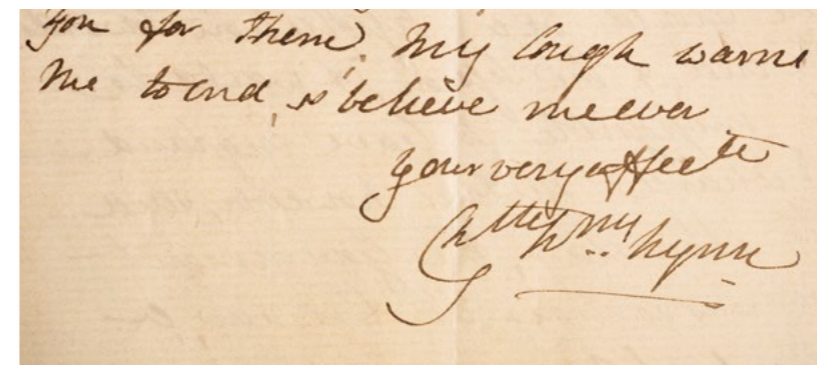 you for them. My Cough warns
me to end, so believe me ever
your very affecte